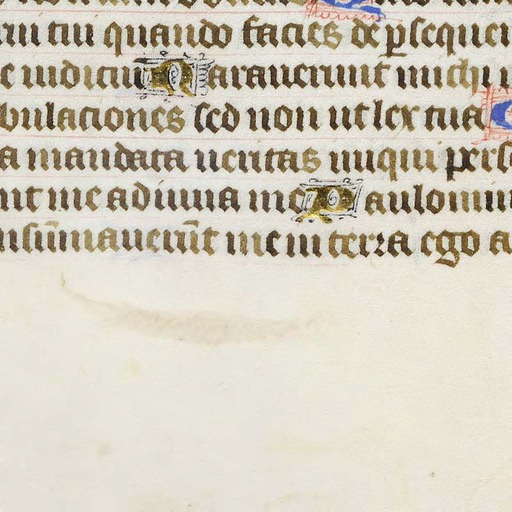 tui quando facies de psequen
e iudiciu Narauerunt michi
bulationes sed non ut lex tua
a mandata ueritas iniqui perse
nt me adiuua me Paulominu
nsumauerut me in terra ego a